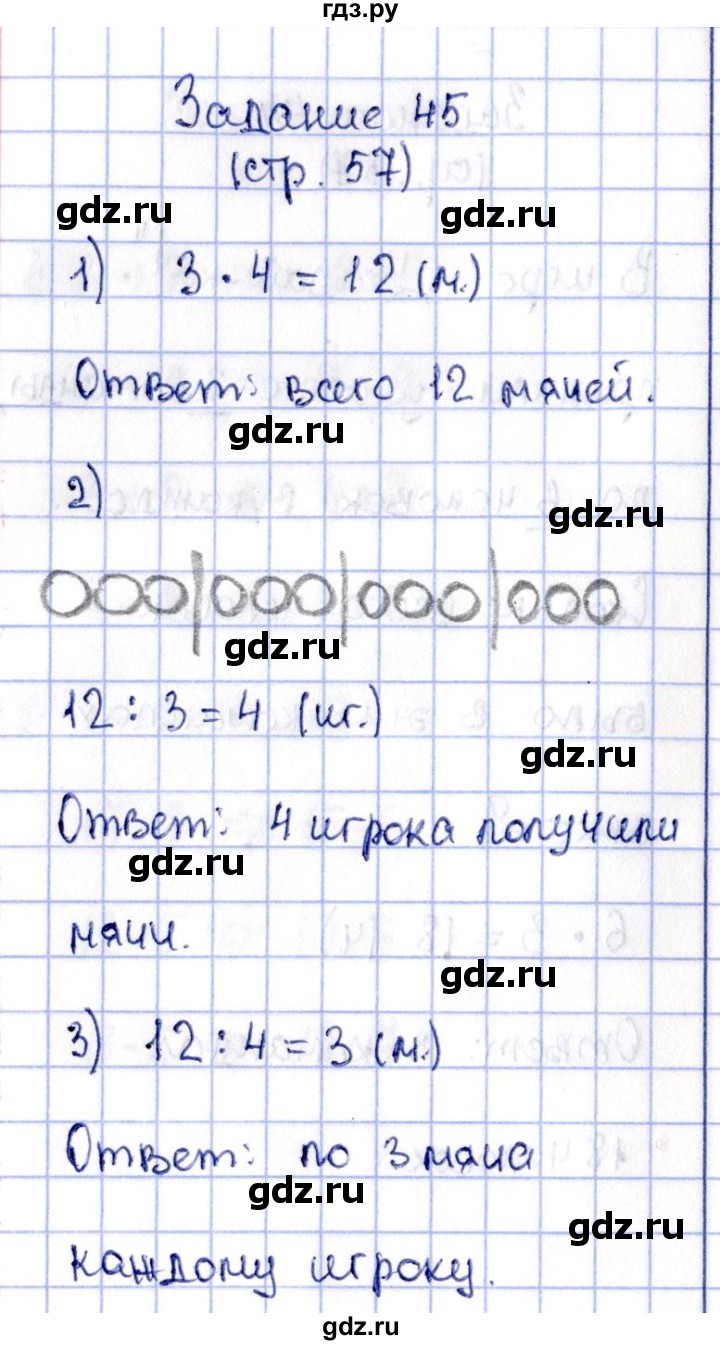 гдз.ру
Задание 45
(стр. 57)
gdz.ru
gdz.ru
1) 3 · 4 = 12 (м.)
Ответ: всего 12 мячей.
gdz.ru
2)
gdz.ru
gdz.ru
12 : 3 = 4 (иг.)
gdz.ru
Ответ: 4 игрока получили
gdz.ru
мячи.
gdz.ru
3) 12 : 4 = 3 (м.)
Ответ: по 3 мяча
gdz.ru
gdz.ru
каждому игроку.
gdz.ru